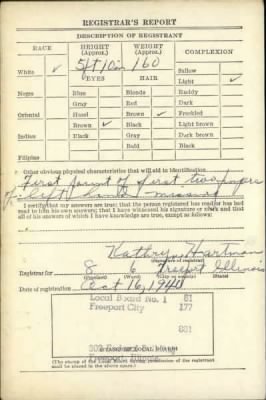 REGISTRAR'S REPORT
DESCRIPTION OF REGISTRANT
RACE HEIGHT (Approx.) WEIGHT (Approx.) COMPLEXION
5 ft 10 in 160 Sallow
White ✓ EYES HAIR Light ✓
Negro Blue Blonde Ruddy
Gray Red Dark
Oriental Hazel Brown ✓ Freckled
Brown ✓ Black Light brown
Indian Black Gray Dark brown
Bald Black
Filipino
Other obvious physical characteristics that will aid in identification
First joint of first two fingers
of left hand - missing
I certify that my answers are true; that the person registered has read or has had
read to him his own answers; that I have witnessed his signature or mark and that
all of his answers of which I have knowledge are true, except as follows:
Kathryn Hartman
(Signature of registrar)
Registrar for 8 6 Freeport Illinois
(Precinct) (Ward) (City or county) (State)
Date of registration Oct 16, 1940
Local Board No. 1 81
Freeport City 177
(STAMP OF LOCAL BOARD)
(The stamp of the Local Board having jurisdiction of the registrant
shall be placed in the above space.)